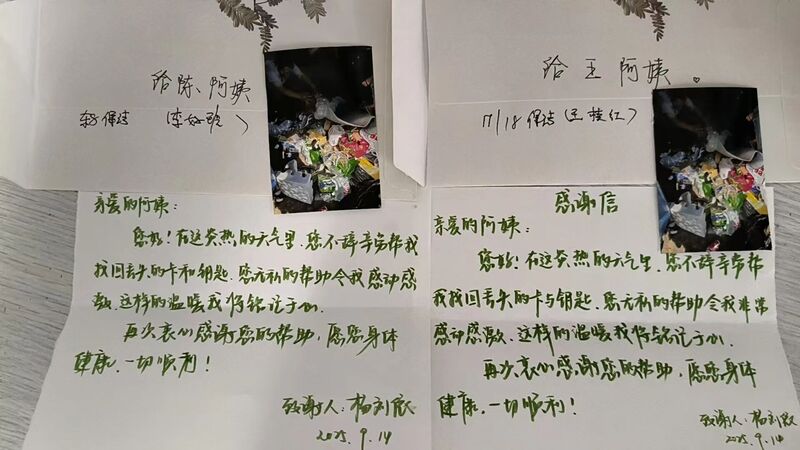 给陈阿姨
保洁
亲爱的阿姨：
您好！在这炎热的天气里，您不辞辛劳帮我
找回丢失的卡和钥匙，您无私的帮助令我感动感
激，这样的温暖我将铭记于心。
再次衷心感谢您的帮助，愿您身体
健康，一切顺利！
致谢人：杨刘欣
2025.9.14
给王阿姨
17/18保洁（王桂红）
感谢信
亲爱的阿姨：
您好！在这炎热的天气里，您不辞辛劳帮
我找回丢失的卡与钥匙，您无私的帮助令我非常
感动感激，这样的温暖我将铭记于心，
再次衷心感谢您的帮助，愿您身体
健康，一切顺利！
致谢人：杨刘欣
2025.9.14